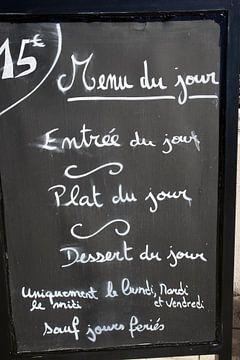 15€
Menu du jour
Entrée du jour
Plat du jour
Dessert du jour
Uniquement le lundi, Mardi
le midi et vendredi
sauf jours feriés